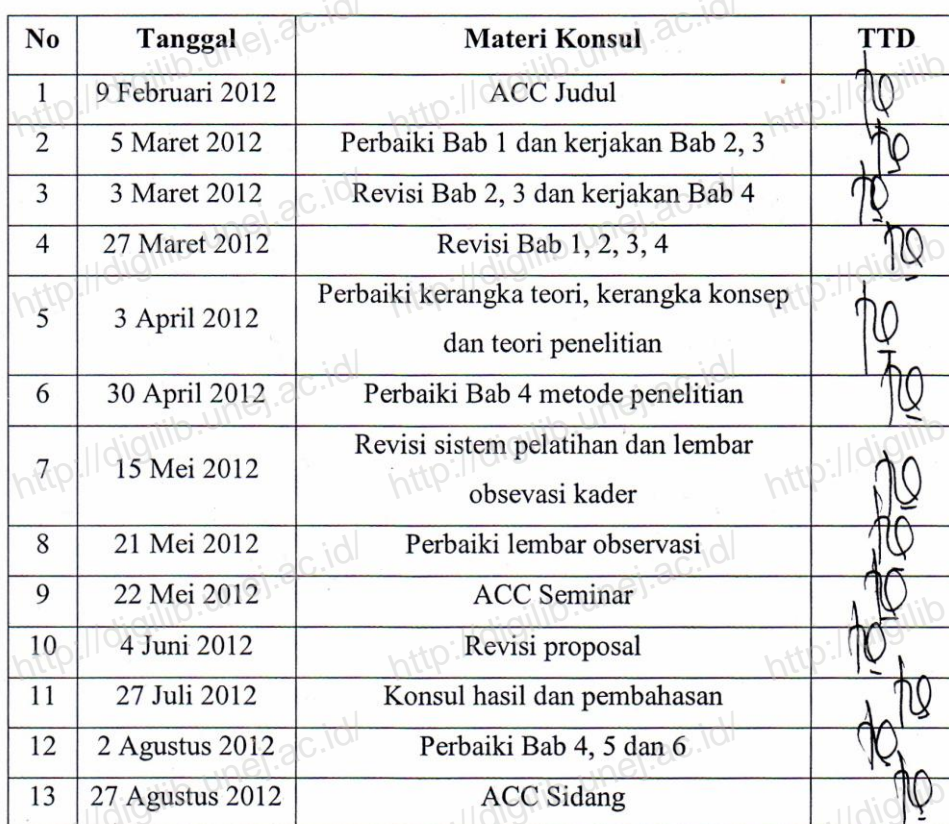 No Tanggal Materi Konsul TTD
1 9 Februari 2012 ACC Judul
2 5 Maret 2012 Perbaiki Bab 1 dan kerjakan Bab 2, 3
3 3 Maret 2012 Revisi Bab 2, 3 dan kerjakan Bab 4
4 27 Maret 2012 Revisi Bab 1, 2, 3, 4
5 3 April 2012 Perbaiki kerangka teori, kerangka konsep
dan teori penelitian
6 30 April 2012 Perbaiki Bab 4 metode penelitian
7 15 Mei 2012 Revisi sistem pelatihan dan lembar
obsevasi kader
8 21 Mei 2012 Perbaiki lembar observasi
9 22 Mei 2012 ACC Seminar
10 4 Juni 2012 Revisi proposal
11 27 Juli 2012 Konsul hasil dan pembahasan
12 2 Agustus 2012 Perbaiki Bab 4, 5 dan 6
13 27 Agustus 2012 ACC Sidang
http://digilib.unej.ac.id/